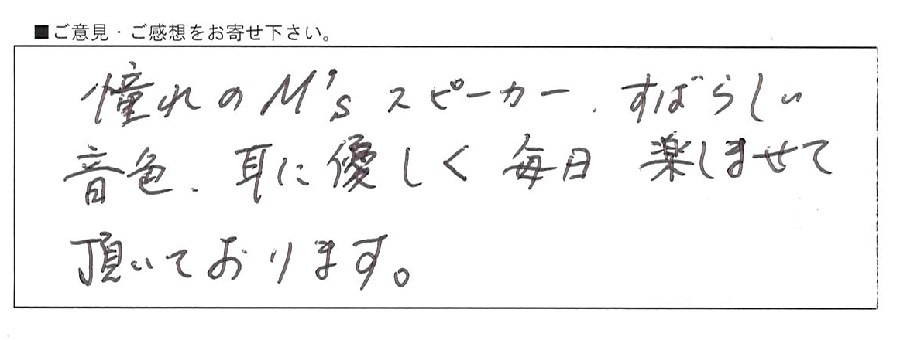 ■ご意見・ご感想をお寄せ下さい。
憧れのM'sスピーカー、すばらしい
音色、耳に優しく毎日楽しませて
頂いております。